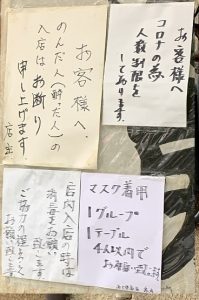 お客様へ
コロナの為
人数制限を
しております。
お客様へ、
のんだ人(酔った人)の
入店はお断り
申し上げます
店主
マスク着用
1グループ
1テーブル
4人以内で
お願い致します
店内入店の時は
お願い
致します
ご協力の程
お願い致します